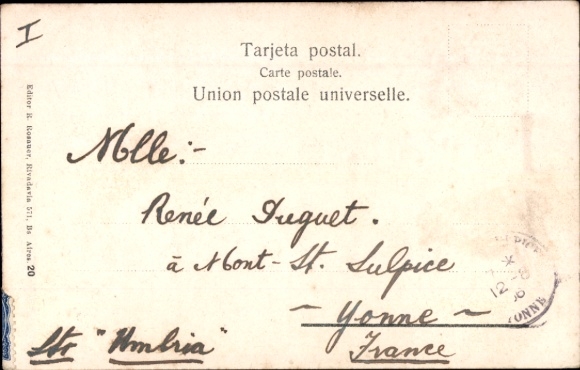 I
Tarjeta postal.
Carte postale.
Union postale universelle.
Editor R. Rosauer, Rivadavia 571, Bs Aires. 20
Mlle:-
Renée Duguet.
à Mont-St. Sulpice
~ Yonne ~
France
Str "Umbria"
YONNE